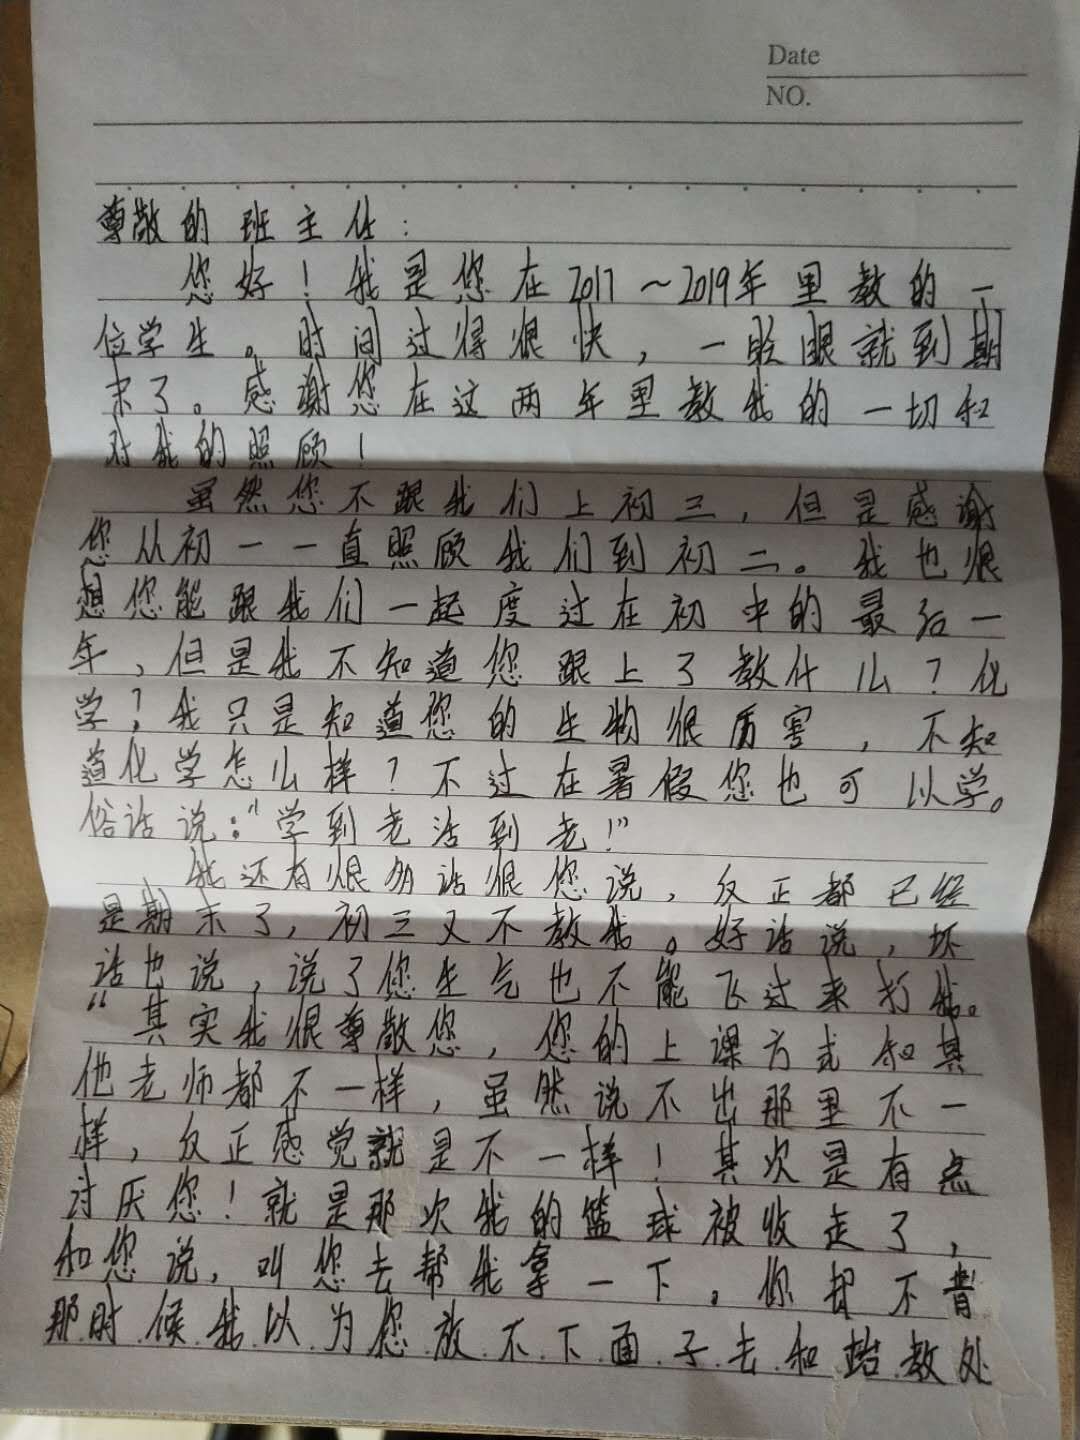 Date
NO.
尊敬的班主任：
您好！我是您在2017～2019年里教的一
位学生。时间过得很快，一眨眼就到期
末了。感谢您在这两年里教我的一切和
对我的照顾！
虽然您不跟我们上初三，但是感谢
您从初一一直照顾我们到初二。我也很
想您能跟我们一起度过在初中的最后一
年，但是我不知道您跟上了教什么？化
学？我只是知道您的生物很厉害，不知
道化学怎么样？不过在暑假您也可以学。
俗话说："学到老活到老！"
我还有很多话很您说，反正都已经
是期末了，初三又不教我。好话说，坏
话也说，说了您生气也不能飞过来打我。
“其实我很尊敬您，您的上课方式和其
他老师都不一样，虽然说不出那里不一
样，反正感觉就是不一样！其次是有点
讨厌您！就是那次我的篮球被收走了，
和您说，叫您去帮我拿一下，你却不肯
那时候我以为您放不下面子去和教处